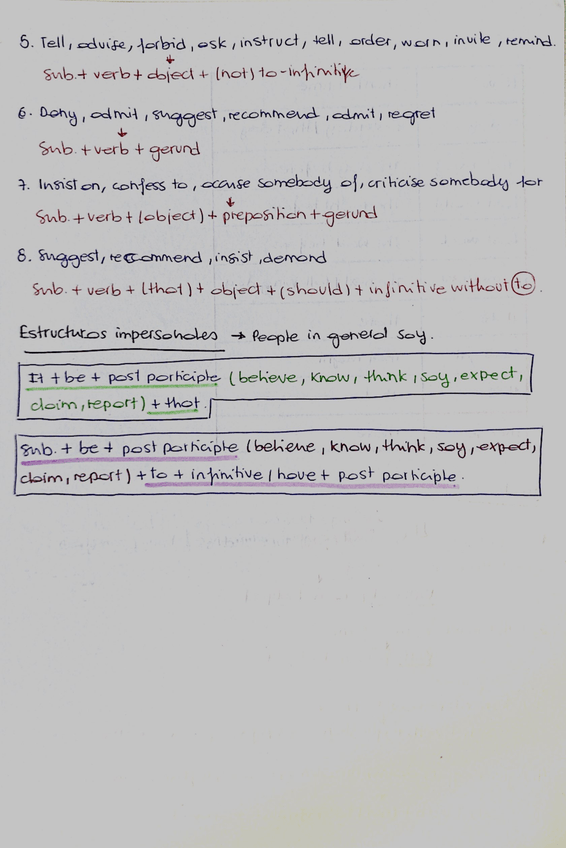 5. Tell, advise, forbid, ask, instruct, tell, order, warn, invite, remind.
↓
Sub. + verb + object + (not) to-infinitive
6. Deny, admit, suggest, recommend, admit, regret
↓
Sub. + verb + gerund
7. Insist on, confess to, accuse somebody of, criticise somebody for
↓
Sub. + verb + (object) + preposition + gerund
8. Suggest, recommend, insist, demand
Sub. + verb + (that) + object + (should) + infinitive without to.
Estructuras impersonales → People in general say.
It + be + past participle (believe, know, think, say, expect,
claim, report) + that.
Sub. + be + past participle (believe, know, think, say, expect,
claim, report) + to + infinitive / have + past participle.